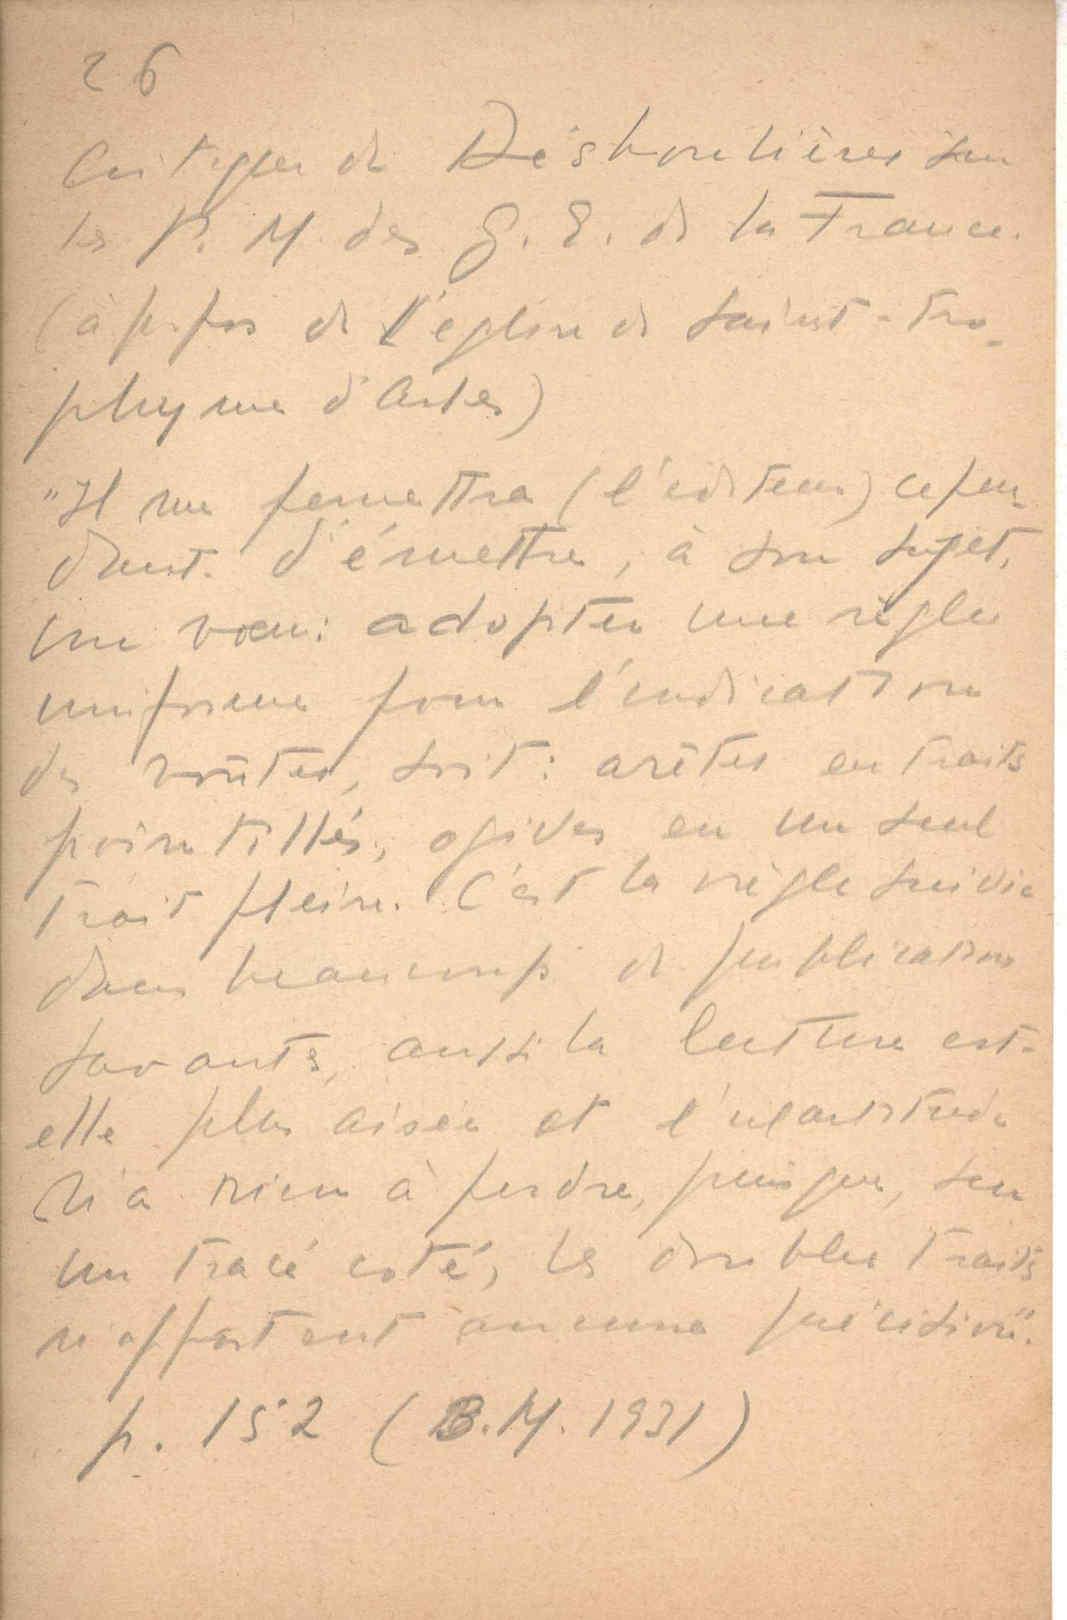 26
Critique de Deshoulières sur
les P. M. des G. E. de la France.
(à propos de l'église de Saint-Tro-
phyme d'Arles)
"Il me permettra (l'éditeur) cepen-
dant d'émettre, à son sujet,
un vœu: adopter une règle
uniforme pour l'indication
des voûtes, soit: arêtes en traits
pointillés, ogives en un seul
trait plein. C'est la règle suivie
dans beaucoup de publications
savants, aussi la lecture est-
elle plus aisée et l'exactitude
n'a rien à perdre, puisque, sur
un tracé coté, les doubles traits
n'apportent aucune précision".
p. 152 (B.M. 1931)